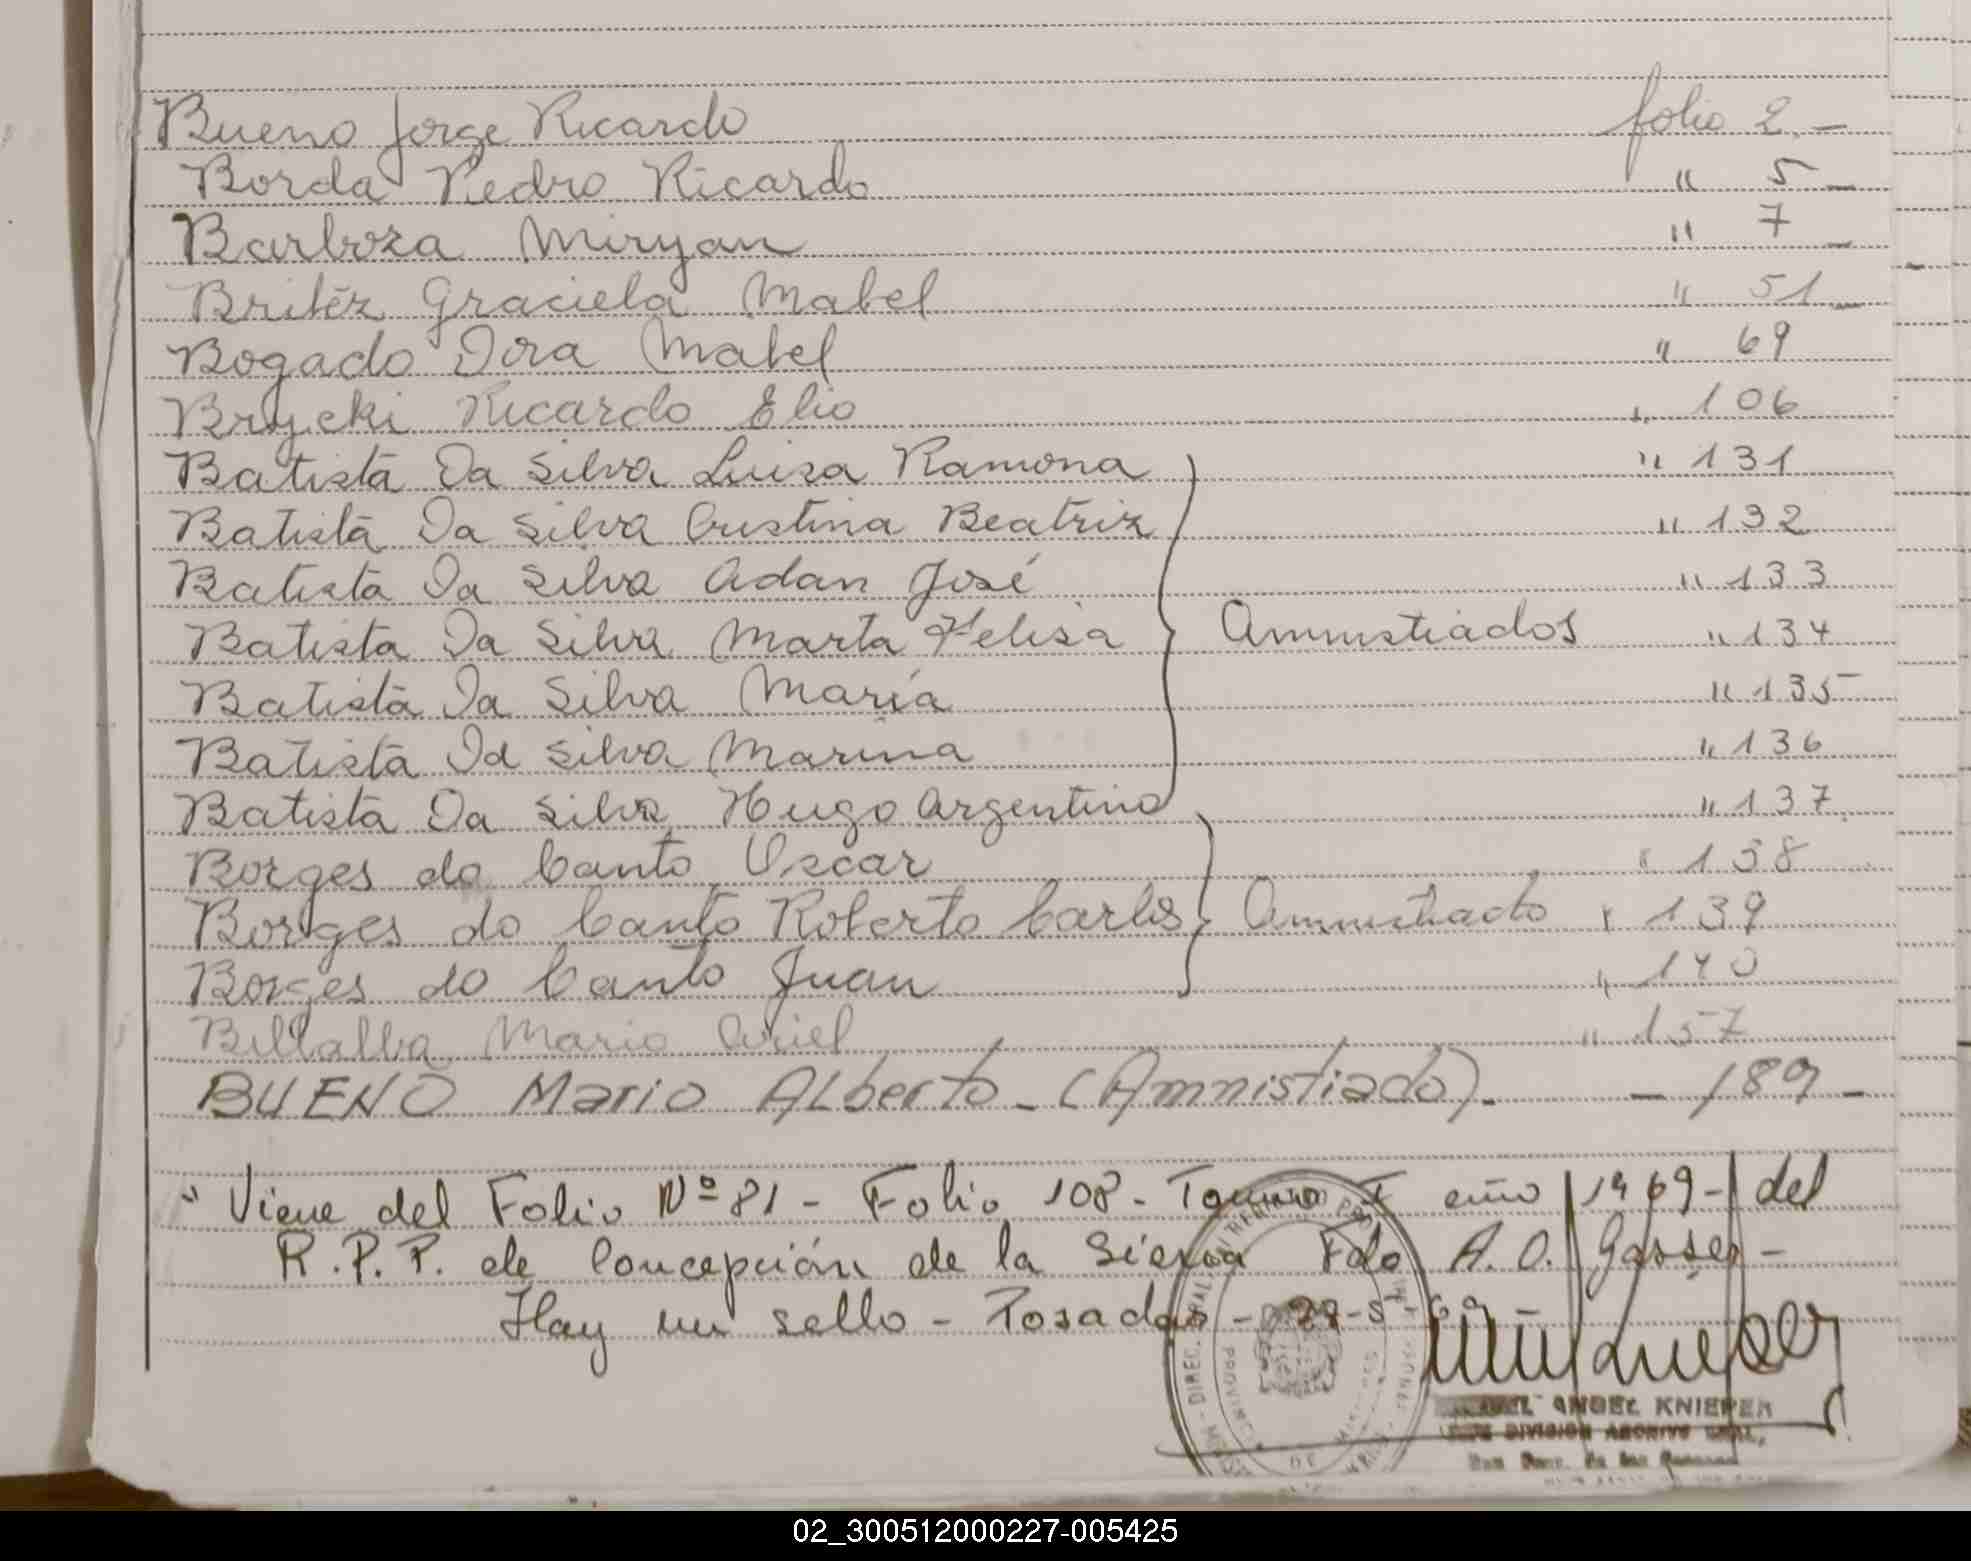 Bueno Jorge Ricardo folio 2.-
Borda Pedro Ricardo " 5 -
Barboza Miryan " 7 -
Britéz Graciela Mabel " 51 -
Bogado Dora Mabel " 69
Brycki Ricardo Elio " 106
Batista Da Silva Luisa Ramona " 131
Batista Da Silva Cristina Beatriz " 132
Batista Da Silva Adan José " 133
Batista Da Silva Marta Felisa Amnistiados " 134
Batista Da Silva María " 135
Batista Da Silva Marina " 136
Batista Da Silva Hugo Argentino " 137
Borges do Canto Oscar " 138
Borges do Canto Roberto Carlos Amnistiado " 139
Borges do Canto Juan " 140
Billalba Mario Ariel " 157
BUENO Mario Alberto - (Amnistiado). - 189 -
" Viene del Folio Nº 81 - Folio 108 - Tomo I año 1969 - del
R.P.P. de Concepción de la Sierra Fdo A.O. Gasser -
Hay un sello - Posadas - 29-5-69 -
ANGEL KNIEPER
DIVISION ARCHIVO GRAL.
02_300512000227-005425